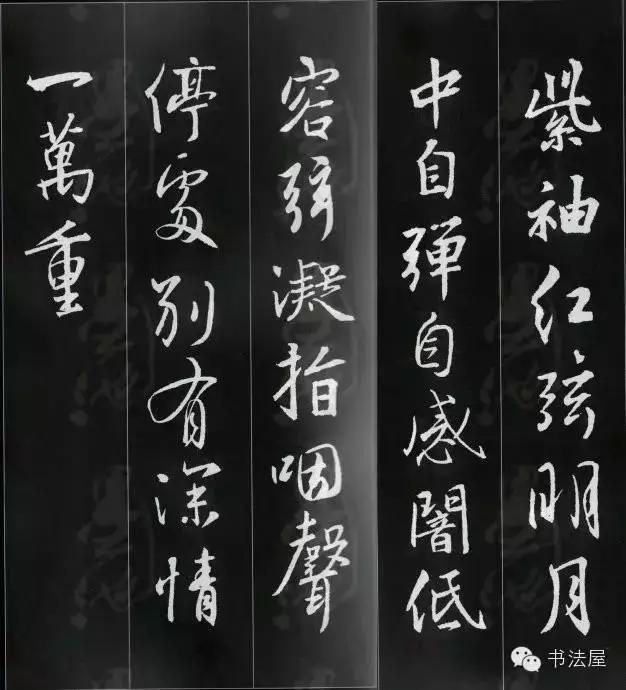 紫袖红弦明月
中自弹自感闇低
容弦凝指咽聲
停處别有深情
一萬重
书法屋